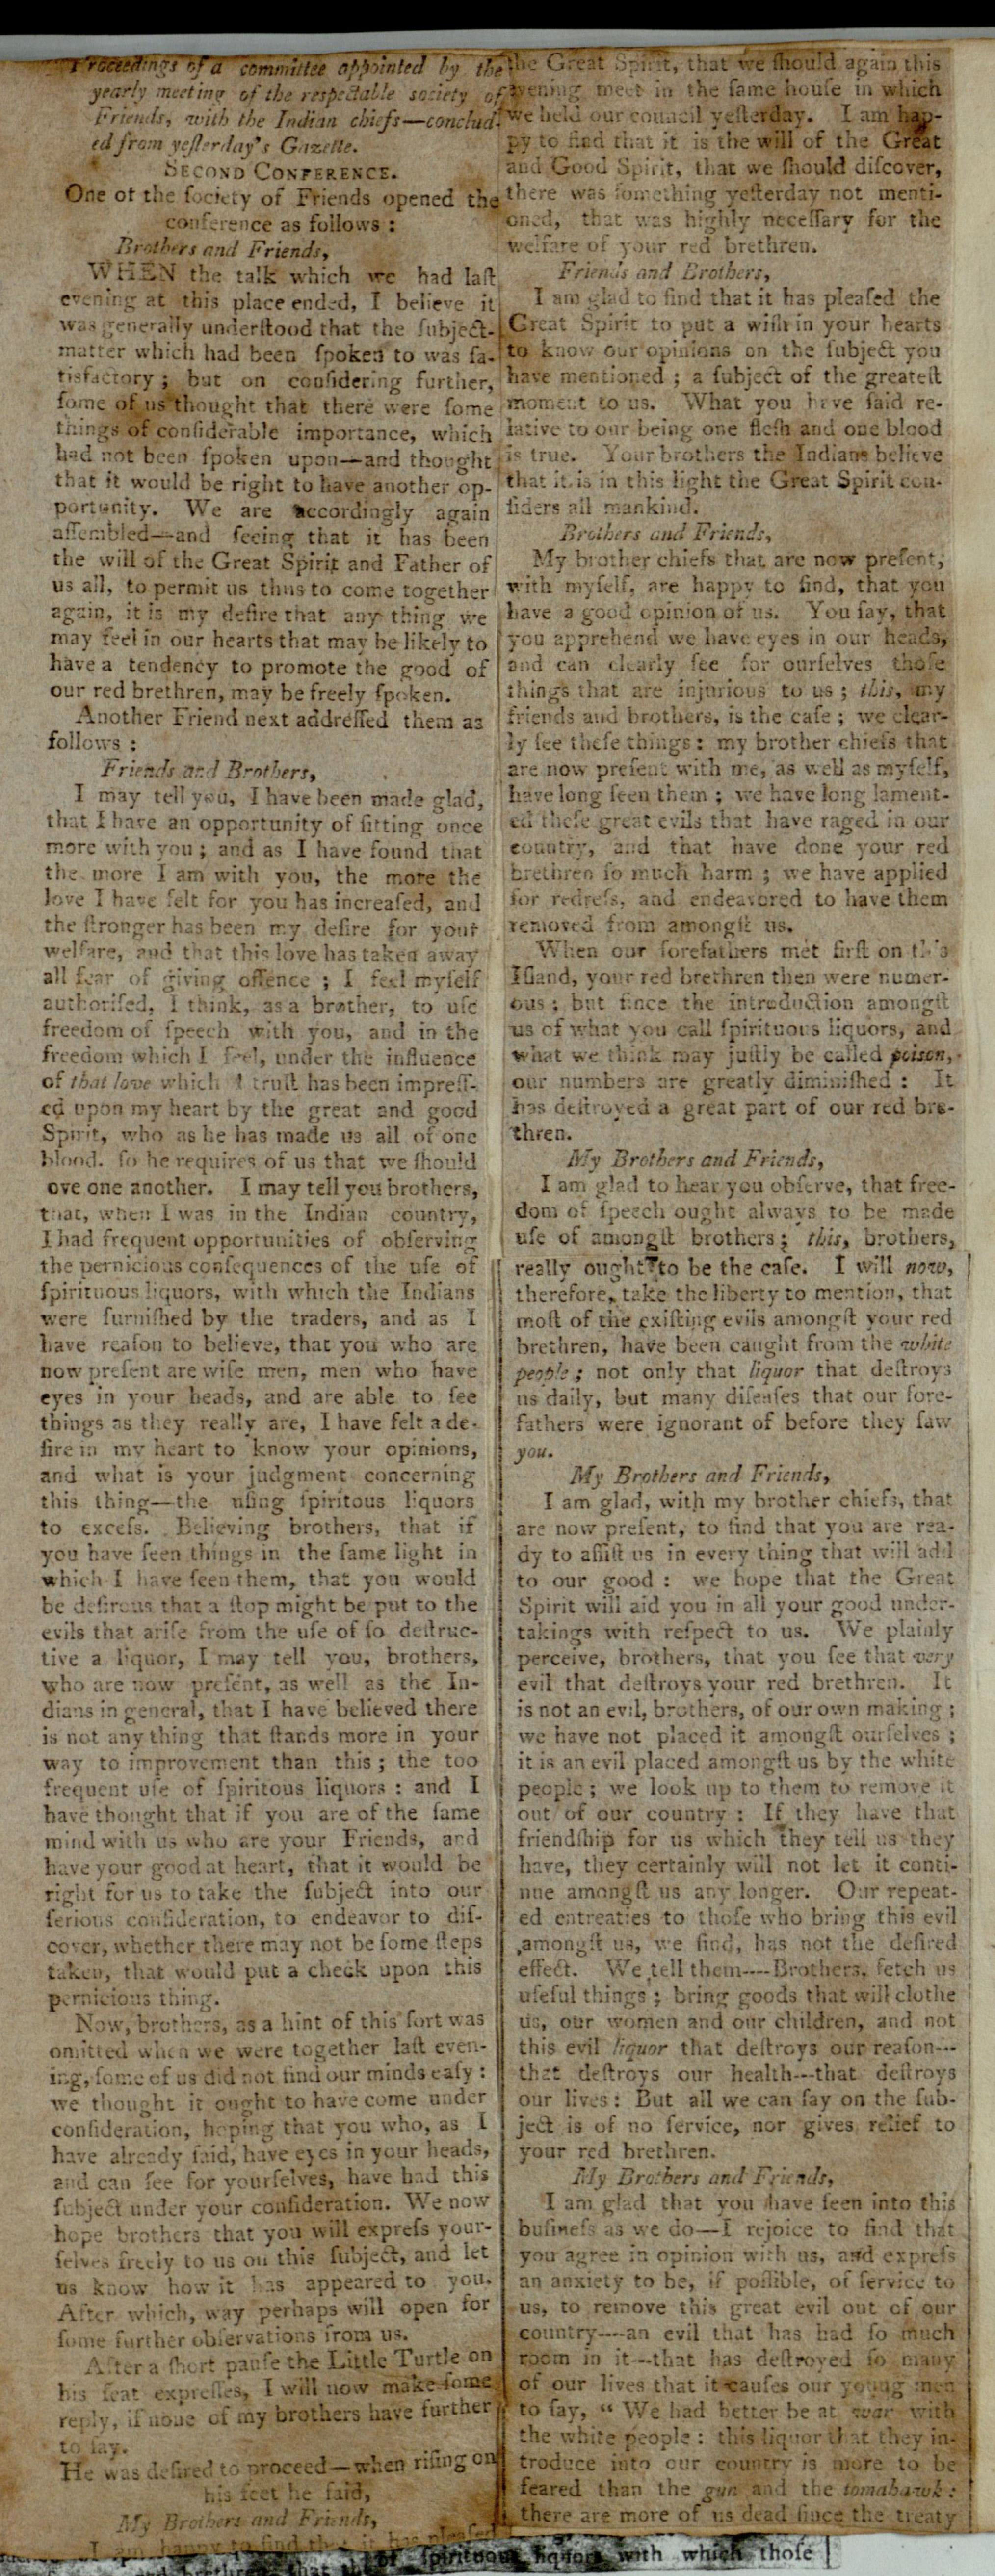 Proceedings of a committee appointed by the
yearly meeting of the respectable society of
Friends, with the Indian chiefs—conclud-
ed from yeſterday's Gazette.
SECOND CONFERENCE.
One of the ſociety of Friends opened the
conference as follows :
Brothers and Friends,
WHEN the talk which we had laſt
evening at this place ended, I believe it
was generally underſtood that the ſubject-
matter which had been ſpoken to was ſa-
tisfactory ; but on conſidering further,
ſome of us thought that there were ſome
things of conſiderable importance, which
had not been ſpoken upon—and thought
that it would be right to have another op-
portunity. We are accordingly again
aſſembled—and ſeeing that it has been
the will of the Great Spirit and Father of
us all, to permit us thus to come together
again, it is my deſire that any thing we
may feel in our hearts that may be likely to
have a tendency to promote the good of
our red brethren, may be freely ſpoken.
Another Friend next addreſſed them as
follows :
Friends and Brothers,
I may tell you, I have been made glad,
that I have an opportunity of ſitting once
more with you ; and as I have found that
the more I am with you, the more the
love I have felt for you has increaſed, and
the ſtronger has been my deſire for your
welfare, and that this love has taken away
all fear of giving offence ; I feel myſelf
authoriſed, I think, as a brother, to uſe
freedom of ſpeech with you, and in the
freedom which I feel, under the influence
of that love which I truſt has been impreſſ-
ed upon my heart by the great and good
Spirit, who as he has made us all of one
blood. ſo he requires of us that we ſhould
ove one another. I may tell you brothers,
that, when I was in the Indian country,
I had frequent opportunities of obſerving
the pernicious conſequences of the uſe of
ſpirituous liquors, with which the Indians
were furniſhed by the traders, and as I
have reaſon to believe, that you who are
now preſent are wiſe men, men who have
eyes in your heads, and are able to ſee
things as they really are, I have felt a de-
ſire in my heart to know your opinions,
and what is your judgment concerning
this thing—the uſing ſpiritous liquors
to exceſs. Believing brothers, that if
you have ſeen things in the ſame light in
which I have ſeen them, that you would
be deſirous that a ſtop might be put to the
evils that ariſe from the uſe of ſo deſtruc-
tive a liquor, I may tell you, brothers,
who are now preſent, as well as the In-
dians in general, that I have believed there
is not any thing that ſtands more in your
way to improvement than this ; the too
frequent uſe of ſpiritous liquors : and I
have thought that if you are of the ſame
mind with us who are your Friends, and
have your good at heart, that it would be
right for us to take the ſubject into our
ſerious conſideration, to endeavor to diſ-
cover, whether there may not be ſome ſteps
taken, that would put a check upon this
pernicious thing.
Now, brothers, as a hint of this ſort was
omitted when we were together laſt even-
ing, ſome of us did not find our minds eaſy :
we thought it ought to have come under
conſideration, hoping that you who, as I
have already ſaid, have eyes in your heads,
and can ſee for yourſelves, have had this
ſubject under your conſideration. We now
hope brothers that you will expreſs your-
ſelves freely to us on this ſubject, and let
us know how it has appeared to you.
After which, way perhaps will open for
ſome further obſervations from us.
After a ſhort pauſe the Little Turtle on
his ſeat expreſſes, I will now make ſome
reply, if none of my brothers have further
to ſay.
He was deſired to proceed—when riſing on
his feet he ſaid,
My Brothers and Friends,
I am happy to find that it has pleaſed
the Great Spirit, that we ſhould again this
evening meet in the ſame houſe in which
we held our council yeſterday. I am hap-
py to find that it is the will of the Great
and Good Spirit, that we ſhould diſcover,
there was ſomething yeſterday not menti-
oned, that was highly neceſſary for the
welfare of your red brethren.
Friends and Brothers,
I am glad to find that it has pleaſed the
Great Spirit to put a wiſh in your hearts
to know our opinions on the ſubject you
have mentioned ; a ſubject of the greateſt
moment to us. What you have ſaid re-
lative to our being one fleſh and one blood
is true. Your brothers the Indians believe
that it is in this light the Great Spirit con-
ſiders all mankind.
Brothers and Friends,
My brother chiefs that are now preſent,
with myſelf, are happy to find, that you
have a good opinion of us. You ſay, that
you apprehend we have eyes in our heads,
and can clearly ſee for ourſelves thoſe
things that are injurious to us ; this, my
friends and brothers, is the caſe ; we clear-
ly ſee theſe things : my brother chiefs that
are now preſent with me, as well as myſelf,
have long ſeen them ; we have long lament-
ed theſe great evils that have raged in our
country, and that have done your red
brethren ſo much harm ; we have applied
for redreſs, and endeavored to have them
removed from amongſt us.
When our forefathers met firſt on this
Iſland, your red brethren then were numer-
ous ; but ſince the introduction amongſt
us of what you call ſpirituous liquors, and
what we think may juſtly be called poison,
our numbers are greatly diminiſhed : It
has deſtroyed a great part of our red bre-
thren.
My Brothers and Friends,
I am glad to hear you obſerve, that free-
dom of ſpeech ought always to be made
uſe of amongſt brothers ; this, brothers,
really ought to be the caſe. I will now,
therefore, take the liberty to mention, that
moſt of the exiſting evils amongſt your red
brethren, have been caught from the white
people ; not only that liquor that deſtroys
us daily, but many diſeaſes that our fore-
fathers were ignorant of before they ſaw
you.
My Brothers and Friends,
I am glad, with my brother chiefs, that
are now preſent, to find that you are rea-
dy to aſſiſt us in every thing that will add
to our good : we hope that the Great
Spirit will aid you in all your good under-
takings with reſpect to us. We plainly
perceive, brothers, that you ſee that very
evil that deſtroys your red brethren. It
is not an evil, brothers, of our own making ;
we have not placed it amongſt ourſelves ;
it is an evil placed amongſt us by the white
people ; we look up to them to remove it
out of our country : If they have that
friendſhip for us which they tell us they
have, they certainly will not let it conti-
nue amongſt us any longer. Our repeat-
ed entreaties to thoſe who bring this evil
amongſt us, we find, has not the deſired
effect. We tell them----Brothers, fetch us
uſeful things ; bring goods that will clothe
us, our women and our children, and not
this evil liquor that deſtroys our reaſon---
that deſtroys our health---that deſtroys
our lives : But all we can ſay on the ſub-
ject is of no ſervice, nor gives relief to
your red brethren.
My Brothers and Friends,
I am glad that you have ſeen into this
buſineſs as we do—I rejoice to find that
you agree in opinion with us, and expreſs
an anxiety to be, if poſſible, of ſervice to
us, to remove this great evil out of our
country----an evil that has had ſo much
room in it---that has deſtroyed ſo many
of our lives that it cauſes our young men
to ſay, “ We had better be at war with
the white people : this liquor that they in-
troduce into our country is more to be
feared than the gun and the tomahawk :
there are more of us dead ſince the treaty
ſpirituous liquors with which thoſe